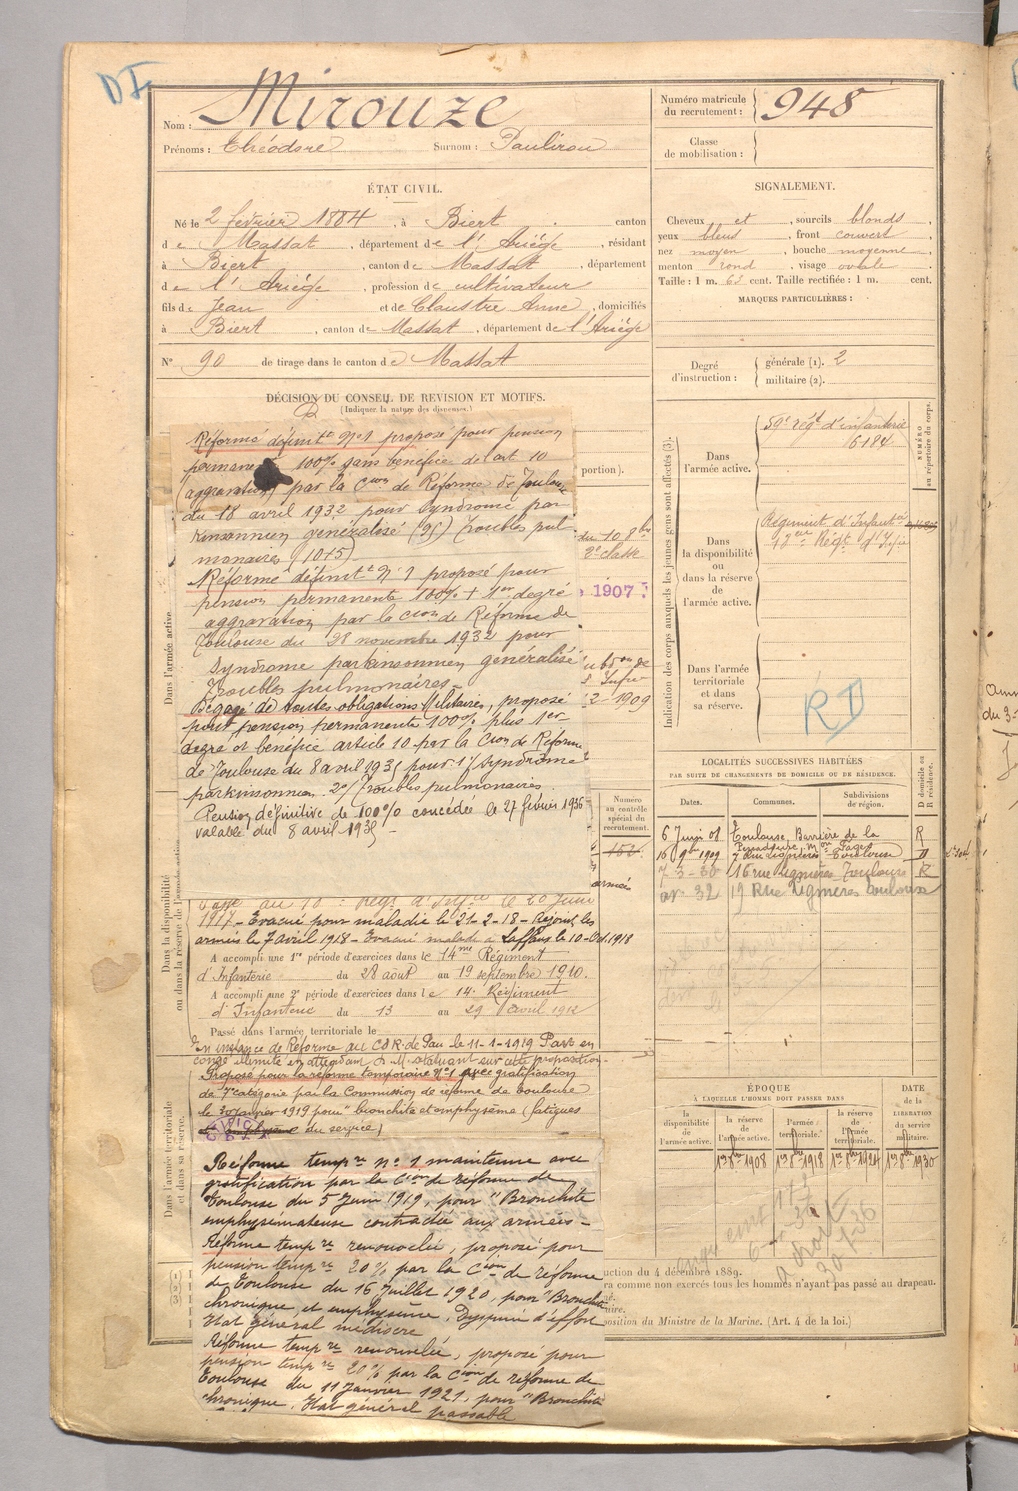 DI
Nom : Mirouze
Prénoms : Théodore Surnom : Paulirou
Numéro matricule du recrutement : 948
Classe de mobilisation :
ÉTAT CIVIL.
Né le 2 février 1884, à Biert, canton
de Massat, département de l'Ariège, résidant
à Biert, canton de Massat, département
de l'Ariège, profession de cultivateur
fils de Jean et de Claustre Anne, domiciliés
à Biert, canton de Massat, département de l'Ariège
N° 90 de tirage dans le canton de Massat
SIGNALEMENT.
Cheveux et, sourcils blonds,
yeux bleus, front couvert
nez moyen, bouche moyenne,
menton rond, visage ovale
Taille : 1 m. 63 cent. Taille rectifiée : 1 m. cent.
MARQUES PARTICULIÈRES :
Degré d'instruction :
générale (1). 2
militaire (2).
DÉCISION DU CONSEIL DE REVISION ET MOTIFS.
(Indiquer la nature des dispenses.)
Réformé définit.t N°1 proposé pour pension
permane 100% sans bénéfice de l'art 10
(aggravation) par la Cion de Réforme de Toulouse
du 18 avril 1932 pour syndrome par
kinsonnien généralisé (95) Troubles pul
monaires (10+5)
Réformé définit.t N° 1 proposé pour
pension permanente 100% + 1er degré
aggravation par la Cion de Réforme de
Toulouse du 28 novembre 1932 pour
syndrome parkinsonnien généralisé
Troubles pulmonaires -
Dégagé de toutes obligations Militaires, proposé
pour pension permanente 100% plus 1er
degré et bénéfice article 10 par la Cion de Réforme
de Toulouse du 8 avril 1935 pour 1°/ Syndrôme
parkinsonnien 2°/ Troubles pulmonaires
Pension définitive de 100% concédée le 27 février 1936
valable du 8 avril 1935 -
portion).
du 10 8bre
2e classe
1907
2-1909
Numéro au contrôle spécial du recrutement.
Dans l'armée active.
Dans la disponibilité ou dans la réserve de l'armée active.
Dans l'armée territoriale et dans sa réserve.
Indication des corps auxquels les jeunes gens sont affectés (3).
Dans l'armée active.
59e régt d'infanterie
6184
NUMÉRO au répertoire du corps.
Dans la disponibilité ou dans la réserve de l'armée active.
Régiment d'Infanterie
Dans l'armée territoriale et dans sa réserve.
RD
LOCALITÉS SUCCESSIVES HABITÉES
PAR SUITE DE CHANGEMENTS DE DOMICILE OU DE RÉSIDENCE.
Dates. Communes. Subdivisions de région. D domicile ou R résidence.
6 Juin 08 Toulouse, Barrière de la R
16 9bre 1909 7 rue Lignières Toulouse D
7-3-30 16 rue Lignères Toulouse R
av. 32 19 Rue Lignères Toulouse
1917 - Evacué pour maladie le 21-2-18 - Rejoint les
armées le 7 avril 1918 - Evacué malade à Laffaux le 10-Oct. 1918
A accompli une 1re période d'exercices dans le 14me Régiment
d'Infanterie du 28 août au 19 septembre 1910.
A accompli une 2e période d'exercices dans le 14. Régiment
d'Infanterie du 13 au 29 avril 1912
Passé dans l'armée territoriale le
En instance de Réforme au CSR de Pau le 11-1-1919 Part en
congé illimité en attendant D. M. statuant sur cette proposition -
Proposé pour la réforme temporaire N°1 avec gratification
de 7e catégorie par la Commission de réforme de Toulouse
le 30 janvier 1919 pour "bronchite et emphysème (fatigues
du service)
Réforme tempre n° 1 maintenue avec
gratification par la Cion de réforme de
Toulouse du 5 Juin 1919, pour "Bronchite
emphysémateuse contractée aux armées -
Réforme tempre renouvelée, proposé pour
pension tempre 20% par la Cion de réforme
de Toulouse du 16 Juillet 1920, pour "Bronchite
chronique, et emphysème, Dyspnée d'effort
Etat général médiocre
Réforme tempre renouvelée, proposé pour
pension tempre 20% par la Cion de réforme de
Toulouse du 11 Janvier 1921, pour "Bronchite
chronique. Etat général passable
ÉPOQUE
À LAQUELLE L'HOMME DOIT PASSER DANS
la disponibilité de l'armée active. la réserve de l'armée active. l'armée territoriale. la réserve de l'armée territoriale. DATE de la LIBÉRATION du service militaire.
1er 8bre 1908 1er 8bre 1918 1er 8bre 1924 1er 8bre 1930
uction du 4 décembre 1889.
ra comme non exercés tous les hommes n'ayant pas passé au drapeau.
position du Ministre de la Marine. (Art. 4 de la loi.)
(1)
(2)
(3)